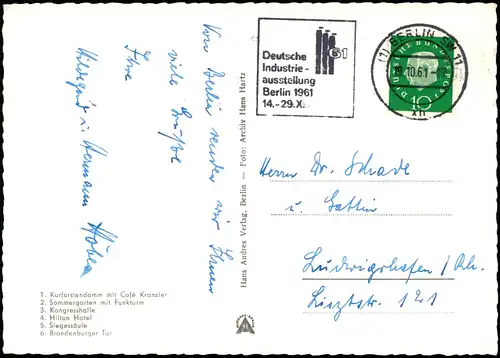 Von Berlin senden wir Ihnen
viele Grüße
Ihre
Hildegard u. Hermann
1. Kurfürstendamm mit Café Kranzler
2. Sommergarten mit Funkturm
3. Kongresshalle
4. Hilton Hotel
5. Siegessäule
6. Brandenburger Tor
Hans Andres Verlag, Berlin – Foto: Archiv Hans Hartz
61
Deutsche
Industrie-
ausstellung
Berlin 1961
14.-29.X.
(1) BERLIN SW 11
10.61
DEUTSCHE BUNDESPOST
10
Herrn Dr. Schade
u. Gattin
Ludwigshafen/Rh.
Lisztstr. 121